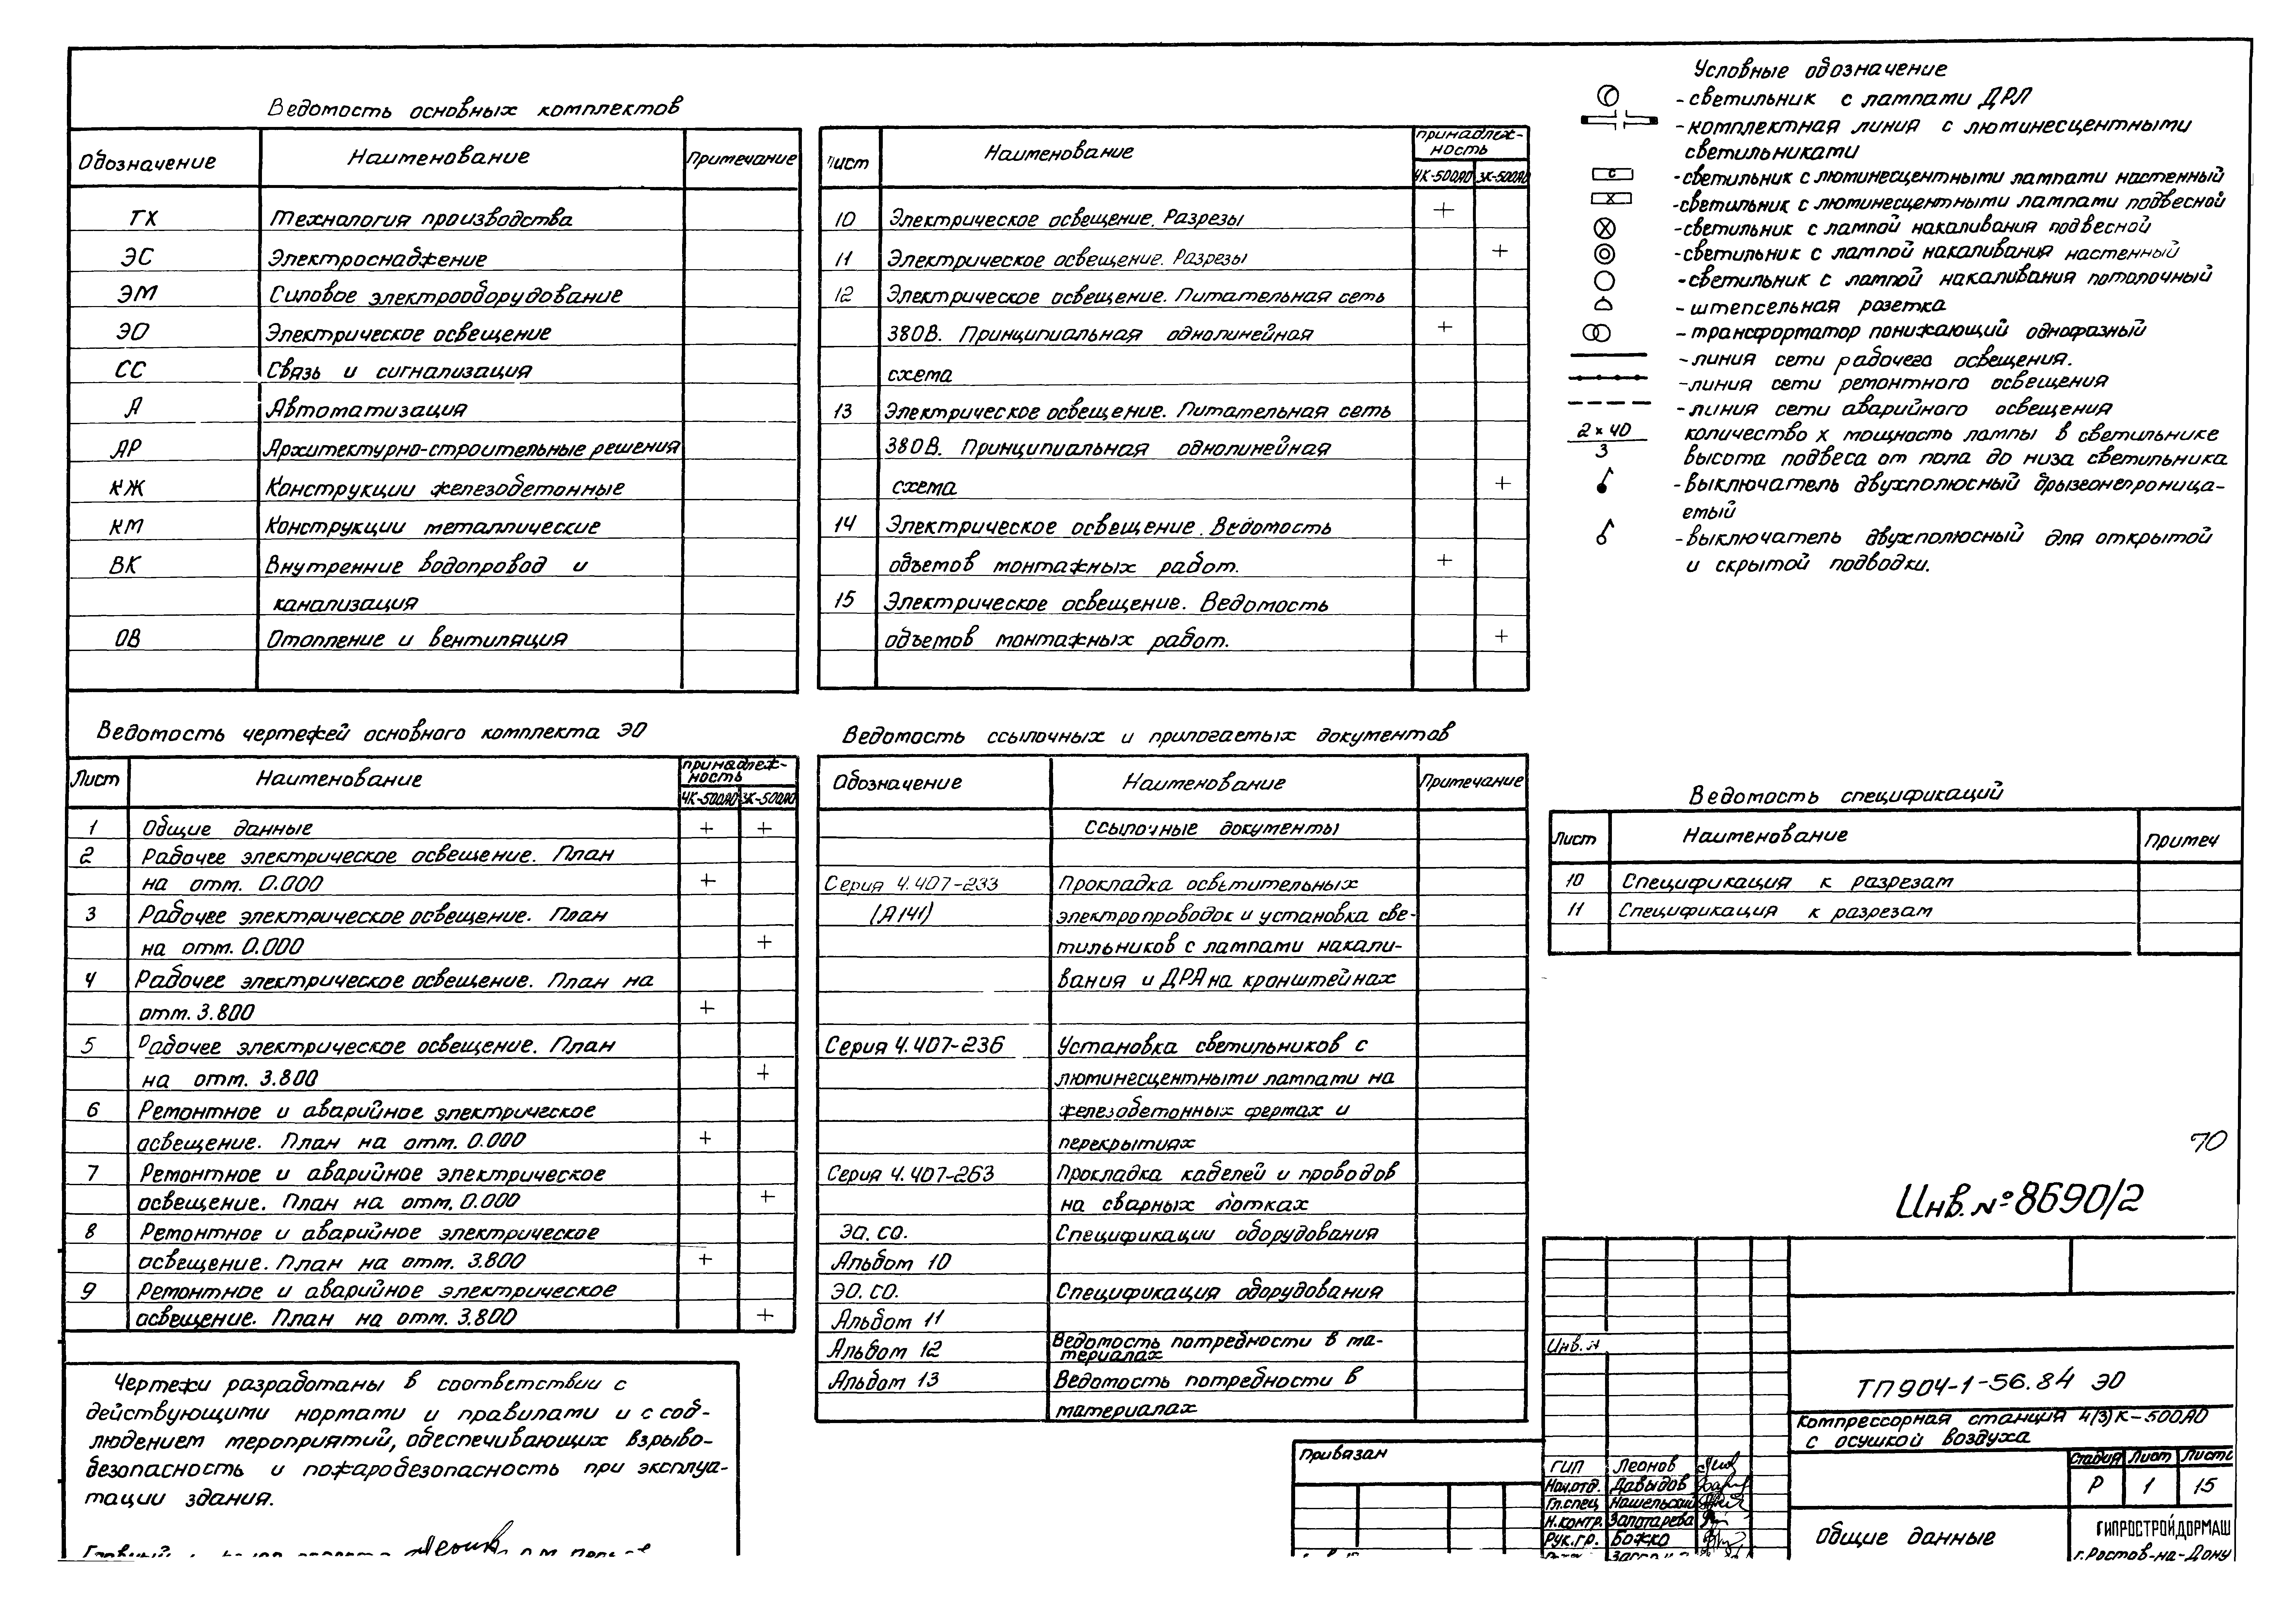 Ведомость основных комплектов
Обозначение Наименование Примечание
ТХ Технология производства
ЭС Электроснабжение
ЭМ Силовое электрооборудование
ЭО Электрическое освещение
СС Связь и сигнализация
А Автоматизация
АР Архитектурно-строительные решения
КЖ Конструкции железобетонные
КМ Конструкции металлические
ВК Внутренние водопровод и
канализация
ОВ Отопление и вентиляция
Лист Наименование принадлеж-
ность
4К-500АО 3К-500АО
10 Электрическое освещение. Разрезы +
11 Электрическое освещение. Разрезы +
12 Электрическое освещение. Питательная сеть
380В. Принципиальная однолинейная +
схема
13 Электрическое освещение. Питательная сеть
380В. Принципиальная однолинейная
схема +
14 Электрическое освещение. Ведомость
объемов монтажных работ. +
15 Электрическое освещение. Ведомость
объемов монтажных работ. +
Условные обозначение
-светильник с лампами ДРЛ
-комплектная линия с люминесцентными
светильниками
С -светильник с люминесцентными лампами настенный
Х -светильник с люминесцентными лампами подвесной
-светильник с лампой накаливания подвесной
-светильник с лампой накаливания настенный
-светильник с лампой накаливания потолочный
-штепсельная розетка
-трансформатор понижающий однофазный
-линия сети рабочего освещения.
-линия сети ремонтного освещения
-линия сети аварийного освещения
2×40 количество х мощность лампы в светильнике
3 высота подвеса от пола до низа светильника
-выключатель двухполюсный брызгонепроница-
емый
-выключатель двухполюсный для открытой
и скрытой подводки.
Ведомость чертежей основного комплекта ЭО
Лист Наименование принадлеж-
ность
4К-500АО 3К-500АО
1 Общие данные + +
2 Рабочее электрическое освещение. План
на отм. 0.000 +
3 Рабочее электрическое освещение. План
на отм. 0.000 +
4 Рабочее электрическое освещение. План на
отм. 3.800 +
5 Рабочее электрическое освещение. План
на отм. 3.800 +
6 Ремонтное и аварийное электрическое
освещение. План на отм. 0.000 +
7 Ремонтное и аварийное электрическое
освещение. План на отм. 0.000 +
8 Ремонтное и аварийное электрическое
освещение. План на отм. 3.800 +
9 Ремонтное и аварийное электрическое
освещение. План на отм. 3.800 +
Ведомость ссылочных и прилогаемых документов
Обозначение Наименование Примечание
Ссылочные документы
Серия 4.407-233 Прокладка осветительных
(А141) электропроводок и установка све-
тильников с лампами накали-
вания и ДРЛ на кронштейнах
Серия 4.407-236 Установка светильников с
люминесцентными лампами на
железобетонных фермах и
перекрытиях
Серия 4.407-263 Прокладка кабелей и проводов
на сварных лотках
ЭО. СО. Спецификации оборудования
Альбом 10
ЭО. СО. Спецификация оборудования
Альбом 11
Альбом 12 Ведомость потребности в ма-
териалах
Альбом 13 Ведомость потребности в
материалах
Ведомость спецификаций
Лист Наименование Примеч
10 Спецификация к разрезам
11 Спецификация к разрезам
Чертежи разработаны в соответствии с
действующими нормами и правилами и с соб-
людением мероприятий, обеспечивающих взрыво-
безопасность и пожаробезопасность при эксплуа-
тации здания.
70
Инв. № 8690/2
Привязан
Инв. №
ТП 904-1-56.84 ЭО
Компрессорная станция 4(3)К-500АО
с осушкой воздуха
Стадия Лист Листо
Р 1 15
ГИП Леонов
Нач.отд. Давыдов
Гл.спец Нашельский
Н.контр. Золотарева
Рук.гр. Божко
Общие данные
ГИПРОСТРОЙДОРМАШ
г.Ростов-на-Дону